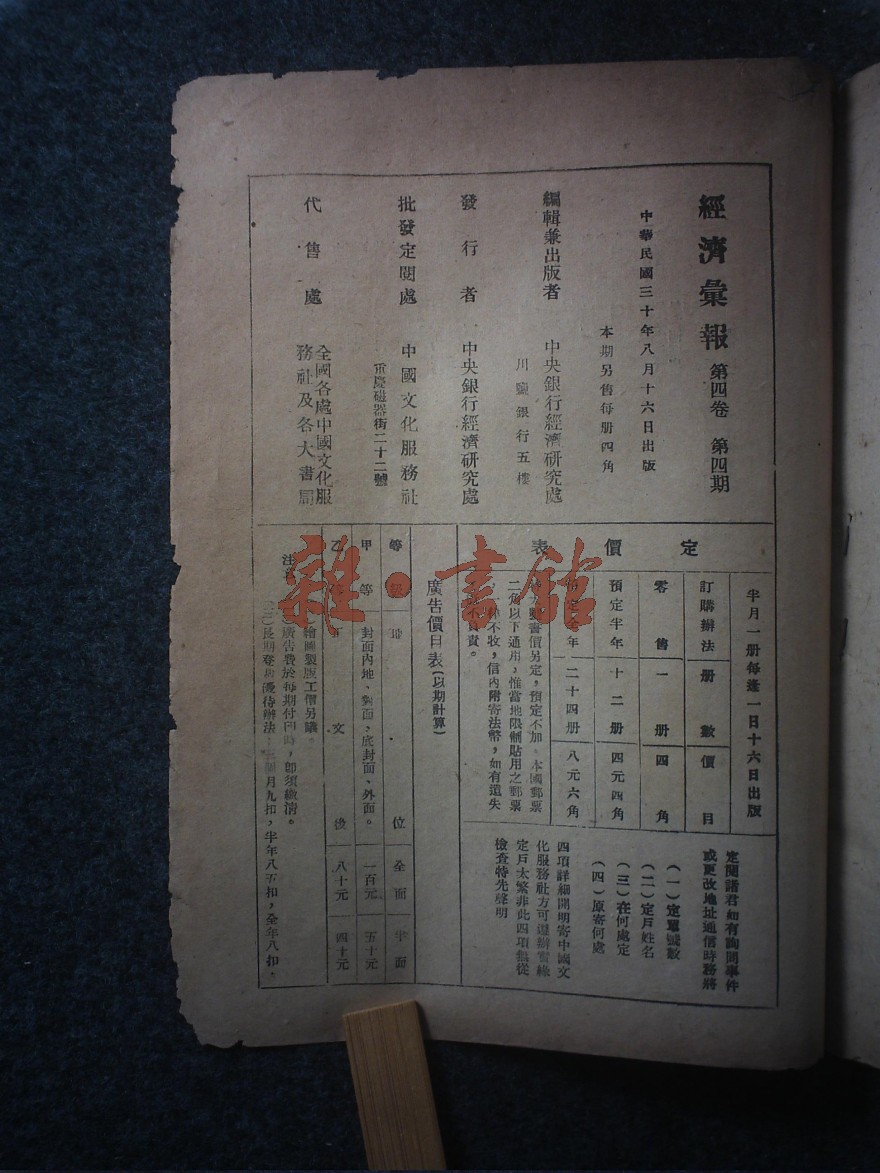 經濟彙報 第四卷 第四期
中華民國三十年八月十六日出版
本期另售每册四角
編輯兼出版者 中央銀行經濟研究處
川鹽銀行五樓
發行者 中央銀行經濟研究處
批發定閱處 中國文化服務社
重慶磁器街二十二號
代售處 全國各處中國文化服
務社及各大書局
定價表
半月一册每逢一日十六日出版
訂購辦法 册數 價目
零售 一册 四角
預定半年 十二册 四元四角
預定全年 二十四册 八元六角
郵書價另定，預定不加。本國郵票
二角以下通用，惟當地限制貼用之郵票
不收，信內附寄法幣，如有遺失
不負責。
定閱諸君如有詢問事件
或更改地址通信時務將
（一）定單號數
（二）定戶姓名
（三）在何處定
（四）原寄何處
四項詳細開明寄中國文
化服務社方可遵辦實緣
定戶太繁非此四項無從
檢查特先聲明
廣告價目表（以期計算）
等級 地位 全面 半面
甲等 封面內地、對面，底封面、外面。 一百元 五十元
乙等 正文後 八十元 四十元
注意
繪圖製版工價另議。
廣告費於每期付印時，卽須繳清。
（三）長期登刊優待辦法：三個月九扣，半年八五扣，全年八扣。
雜·書館